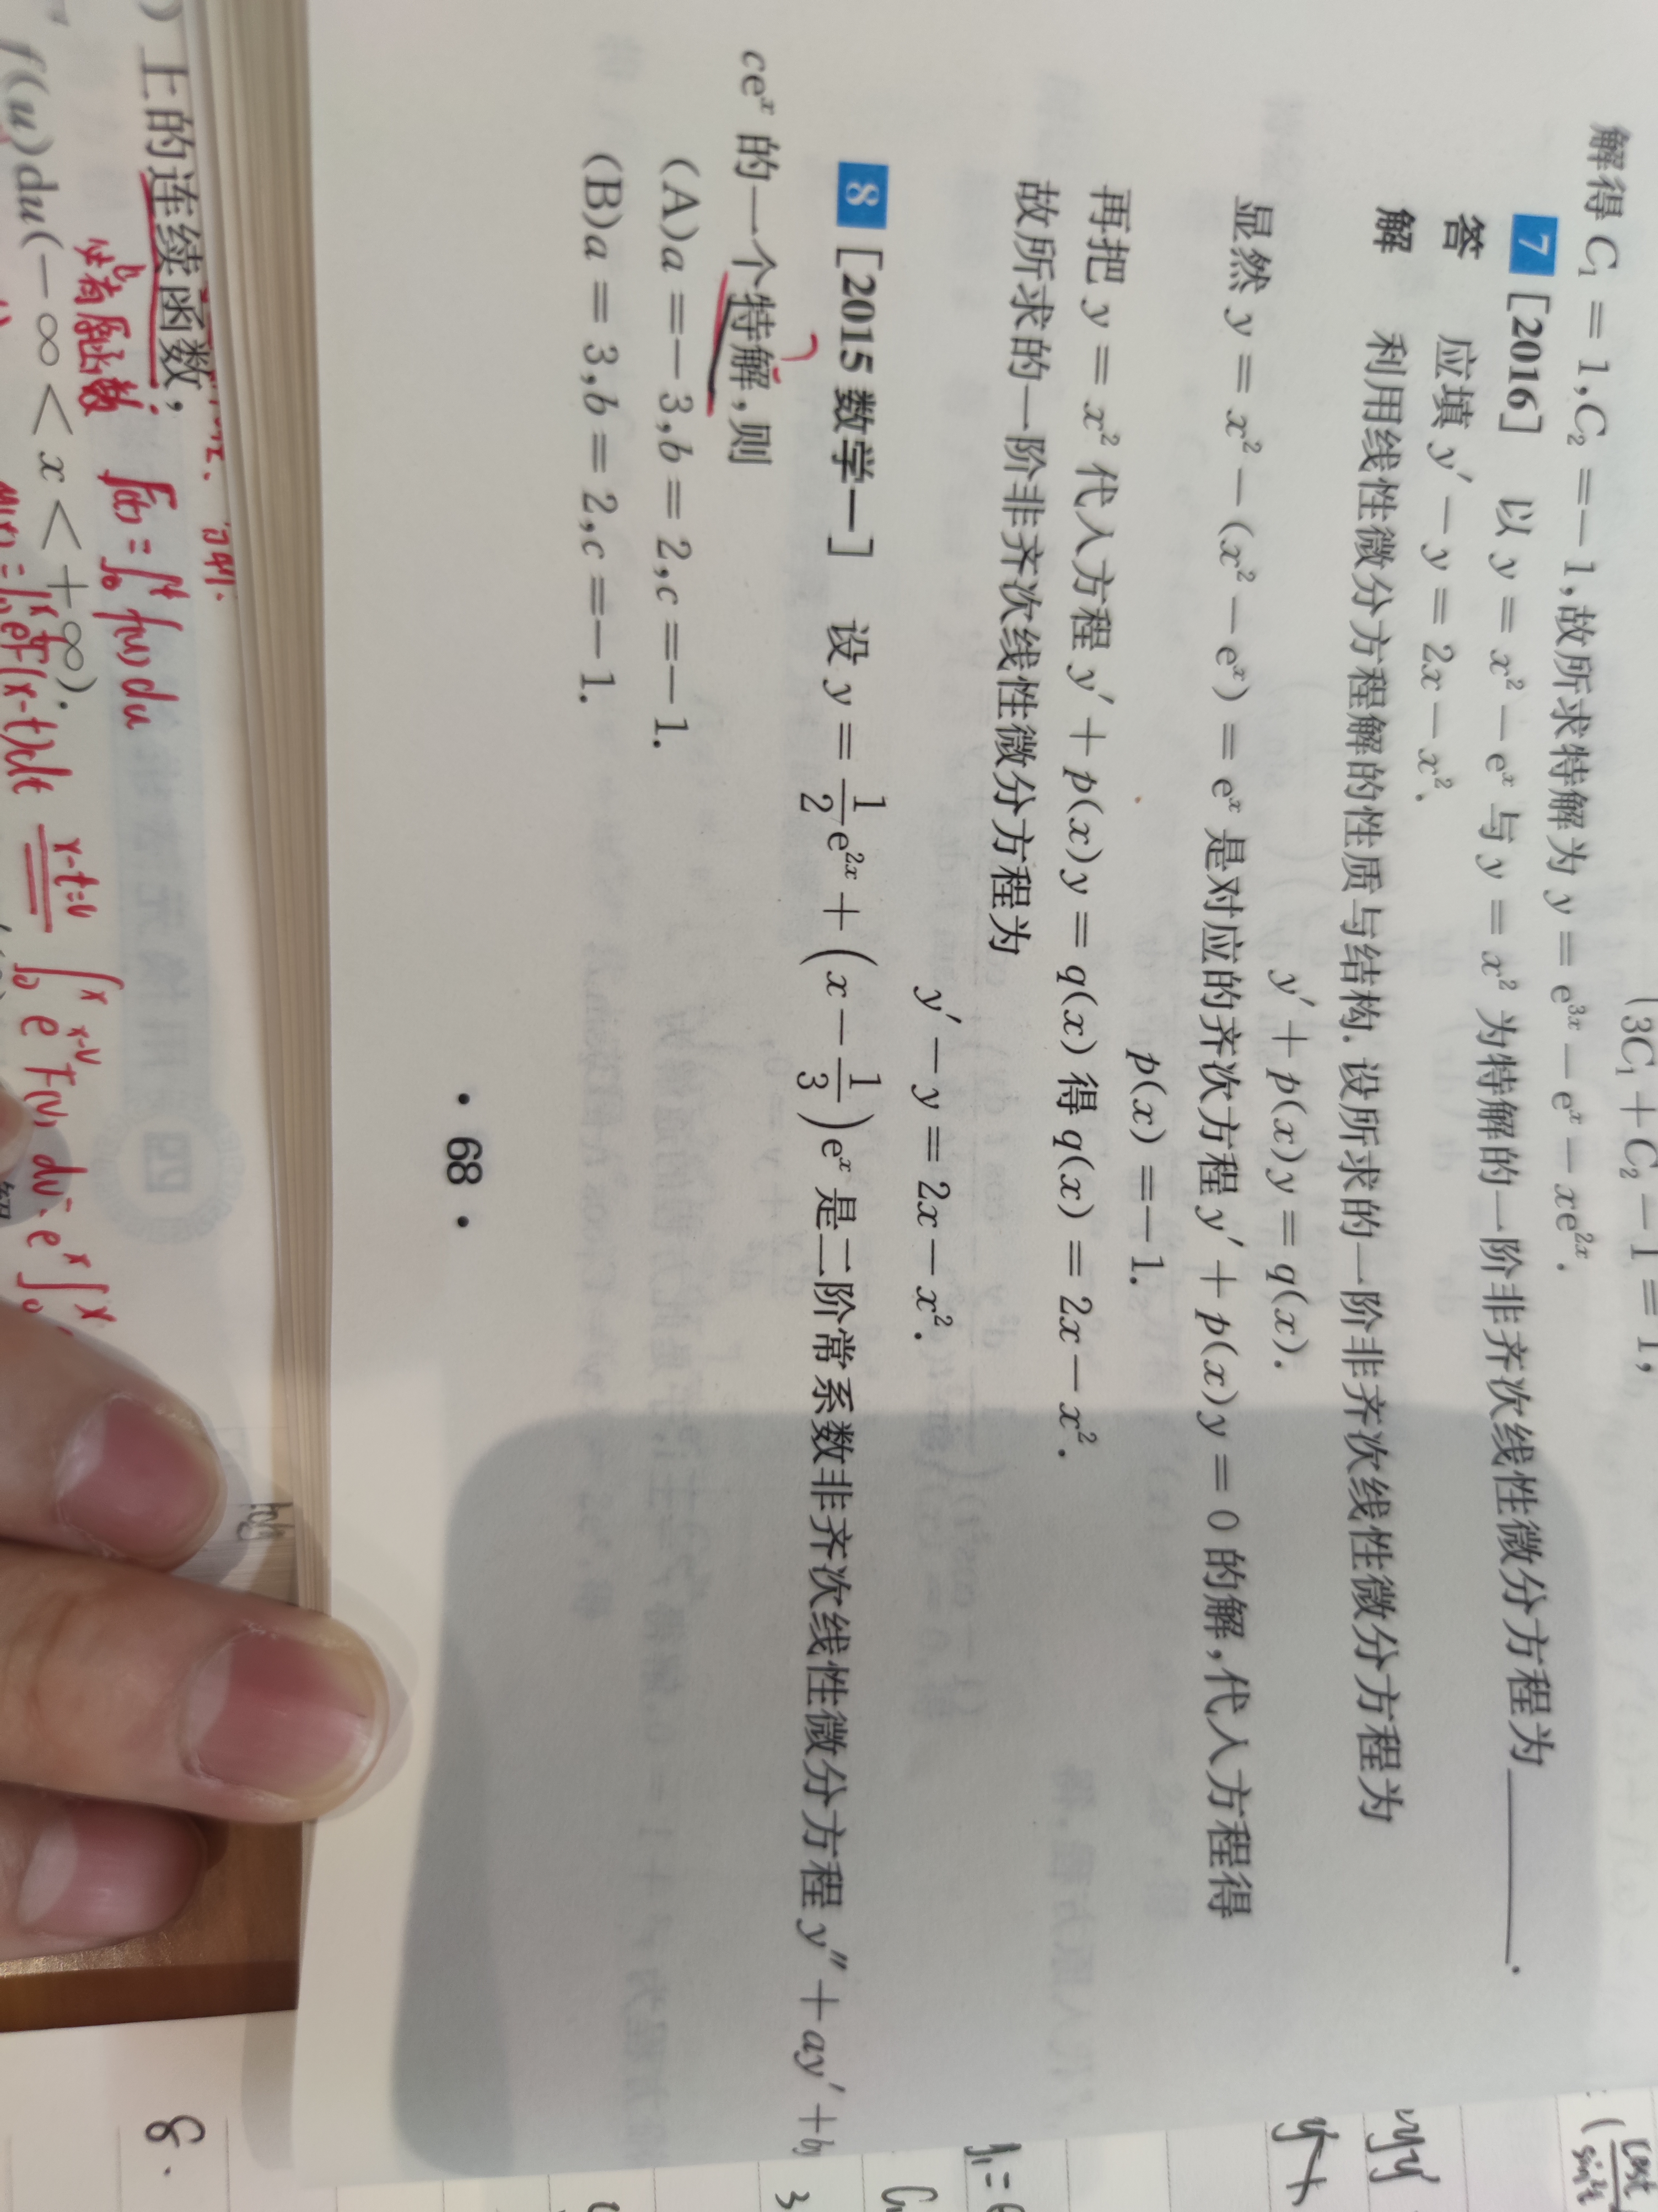 (3C₁ + C₂ − 1 = 1,
解得 C₁ = 1, C₂ = −1, 故所求特解为 y = e³ˣ − eˣ − xe²ˣ.
7 [2016] 以 y = x² − eˣ 与 y = x² 为特解的一阶非齐次线性微分方程为________.
答 应填 y′ − y = 2x − x².
解 利用线性微分方程解的性质与结构. 设所求的一阶非齐次线性微分方程为
y′ + p(x)y = q(x).
显然 y = x² − (x² − eˣ) = eˣ 是对应的齐次方程 y′ + p(x)y = 0 的解, 代入方程得
p(x) = −1.
再把 y = x² 代入方程 y′ + p(x)y = q(x) 得 q(x) = 2x − x².
故所求的一阶非齐次线性微分方程为
y′ − y = 2x − x².
8 [2015 数学一] 设 y = 1/2 e²ˣ + (x − 1/3)eˣ 是二阶常系数非齐次线性微分方程 y″ + ay′ + b
ceˣ 的一个特解, 则
(A) a = −3, b = 2, c = −1.
(B) a = 3, b = 2, c = −1.
· 68 ·
) 上的连续函数,
f(u)du(−∞ < x < +∞).
必有原函数
F(x) = ∫₀ˣ f(u)du
x−t=v
8.